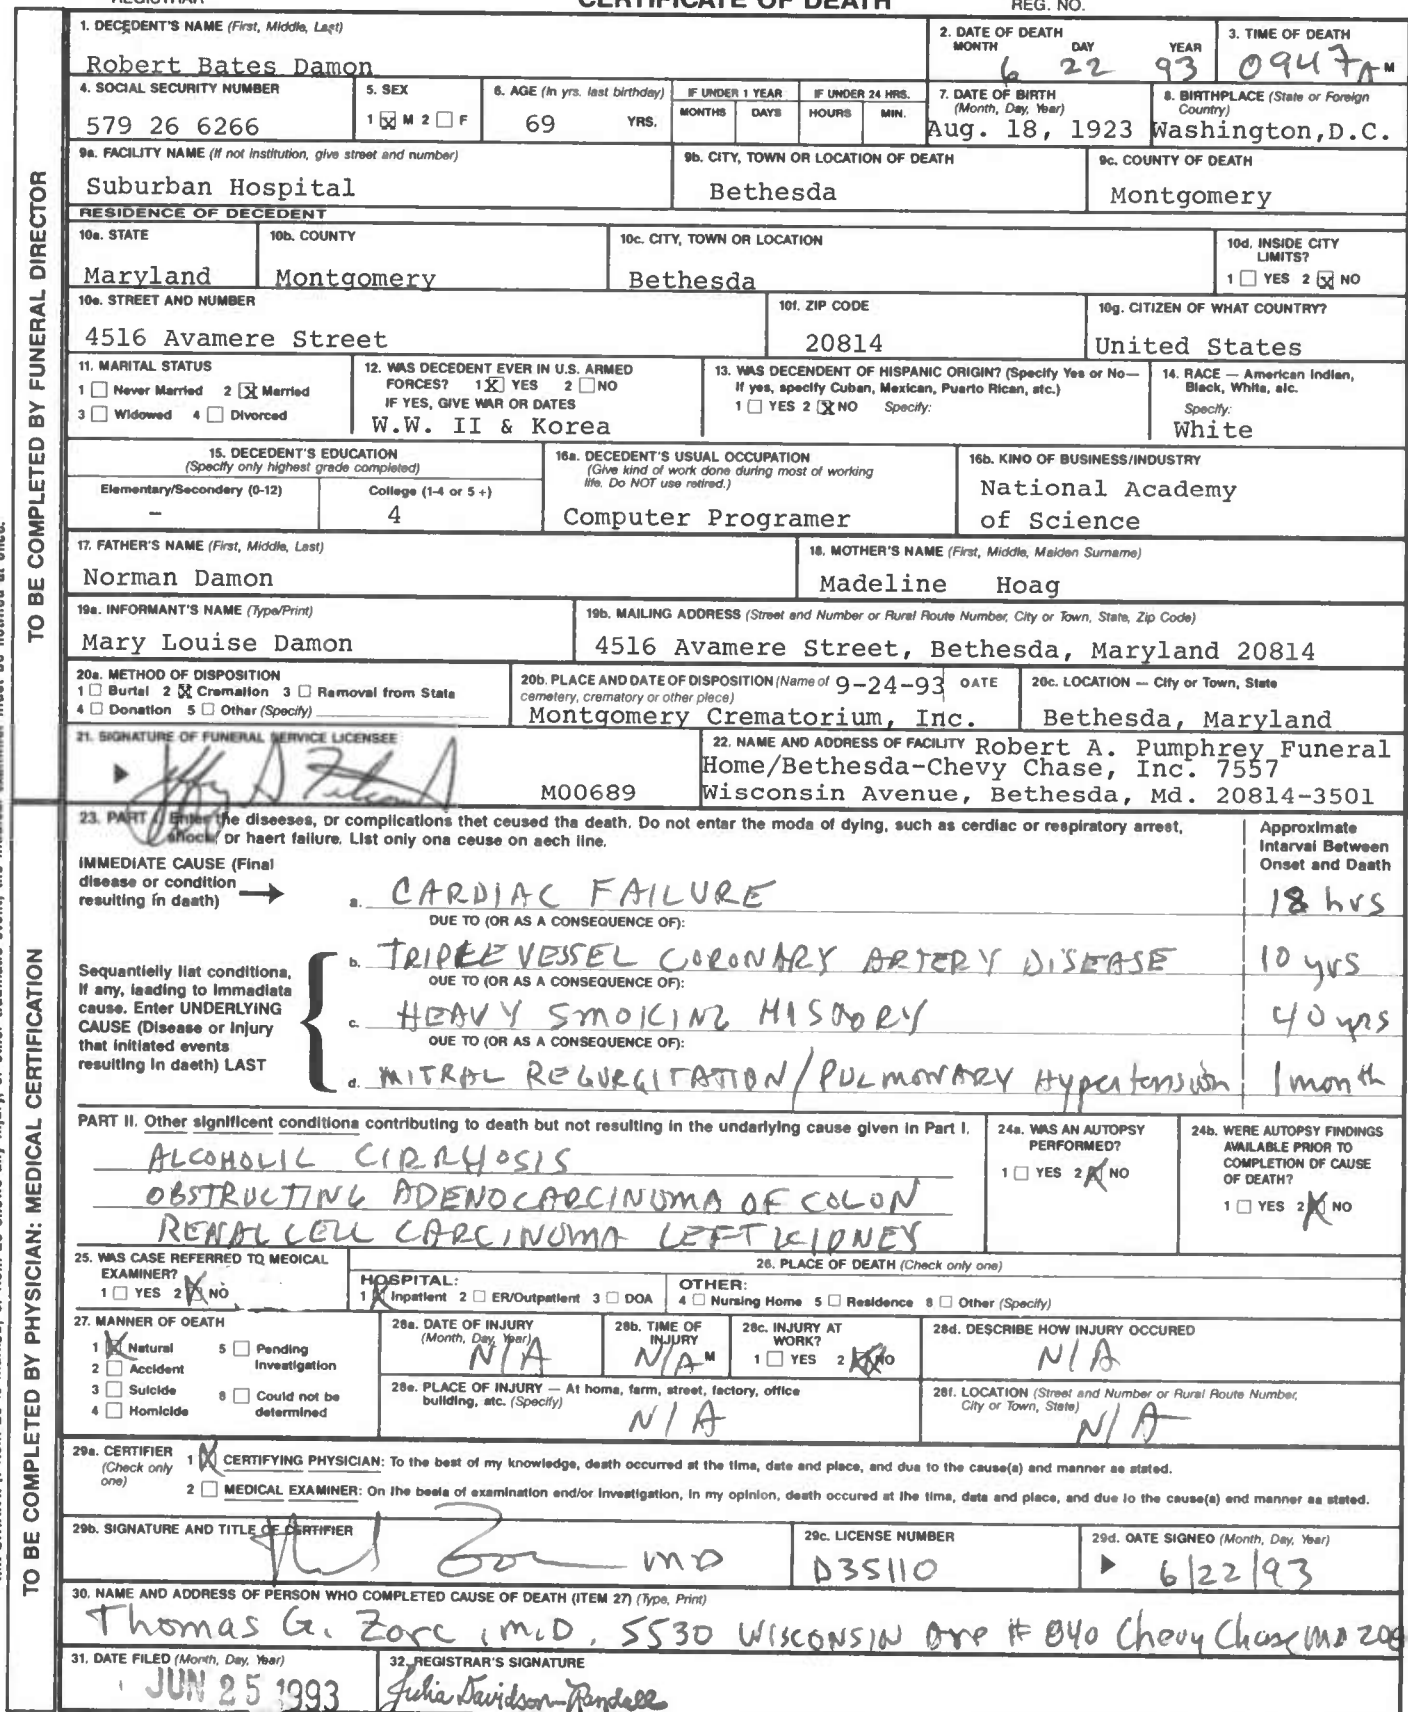 CERTIFICATE OF DEATH
REGISTRAR
REG. NO.
TO BE COMPLETED BY FUNERAL DIRECTOR
1. DECEDENT'S NAME (First, Middle, Last)
Robert Bates Damon
2. DATE OF DEATH
MONTH DAY YEAR
6 22 93
3. TIME OF DEATH
0947 A M
4. SOCIAL SECURITY NUMBER
579 26 6266
5. SEX
1 ☒ M 2 ☐ F
6. AGE (In yrs. last birthday)
69 YRS.
IF UNDER 1 YEAR
MONTHS DAYS
IF UNDER 24 HRS.
HOURS MIN.
7. DATE OF BIRTH
(Month, Day, Year)
Aug. 18, 1923
8. BIRTHPLACE (State or Foreign
Country)
Washington,D.C.
9a. FACILITY NAME (If not institution, give street and number)
Suburban Hospital
9b. CITY, TOWN OR LOCATION OF DEATH
Bethesda
9c. COUNTY OF DEATH
Montgomery
RESIDENCE OF DECEDENT
10a. STATE
Maryland
10b. COUNTY
Montgomery
10c. CITY, TOWN OR LOCATION
Bethesda
10d. INSIDE CITY
LIMITS?
1 ☐ YES 2 ☒ NO
10e. STREET AND NUMBER
4516 Avamere Street
10f. ZIP CODE
20814
10g. CITIZEN OF WHAT COUNTRY?
United States
11. MARITAL STATUS
1 ☐ Never Married 2 ☒ Married
3 ☐ Widowed 4 ☐ Divorced
12. WAS DECEDENT EVER IN U.S. ARMED
FORCES? 1 ☒ YES 2 ☐ NO
IF YES, GIVE WAR OR DATES
W.W. II & Korea
13. WAS DECENDENT OF HISPANIC ORIGIN? (Specify Yes or No—
If yes, specify Cuban, Mexican, Puerto Rican, etc.)
1 ☐ YES 2 ☒ NO Specify:
14. RACE — American Indian,
Black, White, etc.
Specify:
White
15. DECEDENT'S EDUCATION
(Specify only highest grade completed)
Elementary/Secondery (0-12)
–
College (1-4 or 5 +)
4
16a. DECEDENT'S USUAL OCCUPATION
(Give kind of work done during most of working
life. Do NOT use retired.)
Computer Programer
16b. KIND OF BUSINESS/INDUSTRY
National Academy
of Science
17. FATHER'S NAME (First, Middle, Last)
Norman Damon
18. MOTHER'S NAME (First, Middle, Maiden Surname)
Madeline Hoag
19a. INFORMANT'S NAME (Type/Print)
Mary Louise Damon
19b. MAILING ADDRESS (Street and Number or Rural Route Number, City or Town, State, Zip Code)
4516 Avamere Street, Bethesda, Maryland 20814
20a. METHOD OF DISPOSITION
1 ☐ Burial 2 ☒ Cremation 3 ☐ Removal from State
4 ☐ Donation 5 ☐ Other (Specify)
20b. PLACE AND DATE OF DISPOSITION (Name of 9-24-93 DATE
cemetery, crematory or other place)
Montgomery Crematorium, Inc.
20c. LOCATION — City or Town, State
Bethesda, Maryland
21. SIGNATURE OF FUNERAL SERVICE LICENSEE
M00689
22. NAME AND ADDRESS OF FACILITY Robert A. Pumphrey Funeral
Home/Bethesda-Chevy Chase, Inc. 7557
Wisconsin Avenue, Bethesda, Md. 20814-3501
TO BE COMPLETED BY PHYSICIAN: MEDICAL CERTIFICATION
23. PART I. Enter the diseases, or complications that caused the death. Do not enter the mode of dying, such as cardiac or respiratory arrest,
shock, or heart failure. List only one cause on each line.
Approximate
Interval Between
Onset and Death
IMMEDIATE CAUSE (Final
disease or condition
resulting in death)
a. CARDIAC FAILURE 18 hrs
DUE TO (OR AS A CONSEQUENCE OF):
b. TRIPLE VESSEL CORONARY ARTERY DISEASE 10 yrs
DUE TO (OR AS A CONSEQUENCE OF):
Sequentially list conditions,
if any, leading to immediate
cause. Enter UNDERLYING
CAUSE (Disease or injury
that initiated events
resulting in death) LAST
c. HEAVY SMOKING HISTORY 40 yrs
DUE TO (OR AS A CONSEQUENCE OF):
d. MITRAL REGURGITATION/PULMONARY Hypertension 1 month
PART II. Other significant conditions contributing to death but not resulting in the underlying cause given in Part I.
ALCOHOLIC CIRRHOSIS
OBSTRUCTING ADENOCARCINOMA OF COLON
RENAL CELL CARCINOMA LEFT KIDNEY
24a. WAS AN AUTOPSY
PERFORMED?
1 ☐ YES 2 ☒ NO
24b. WERE AUTOPSY FINDINGS
AVAILABLE PRIOR TO
COMPLETION OF CAUSE
OF DEATH?
1 ☐ YES 2 ☒ NO
25. WAS CASE REFERRED TO MEDICAL
EXAMINER?
1 ☐ YES 2 ☒ NO
26. PLACE OF DEATH (Check only one)
HOSPITAL:
1 ☒ Inpatient 2 ☐ ER/Outpatient 3 ☐ DOA
OTHER:
4 ☐ Nursing Home 5 ☐ Residence 6 ☐ Other (Specify)
27. MANNER OF DEATH
1 ☒ Natural 5 ☐ Pending
Investigation
2 ☐ Accident
3 ☐ Suicide 6 ☐ Could not be
determined
4 ☐ Homicide
28a. DATE OF INJURY
(Month, Day, Year)
N/A
28b. TIME OF
INJURY
N/A M
28c. INJURY AT
WORK?
1 ☐ YES 2 ☒ NO
28d. DESCRIBE HOW INJURY OCCURED
N/A
28e. PLACE OF INJURY — At home, farm, street, factory, office
building, etc. (Specify)
N/A
28f. LOCATION (Street and Number or Rural Route Number,
City or Town, State)
N/A
29a. CERTIFIER
(Check only
one)
1 ☒ CERTIFYING PHYSICIAN: To the best of my knowledge, death occurred at the time, date and place, and due to the cause(s) and manner as stated.
2 ☐ MEDICAL EXAMINER: On the basis of examination and/or investigation, in my opinion, death occured at the time, date and place, and due to the cause(s) and manner as stated.
29b. SIGNATURE AND TITLE OF CERTIFIER
MD
29c. LICENSE NUMBER
D35110
29d. DATE SIGNED (Month, Day, Year)
6/22/93
30. NAME AND ADDRESS OF PERSON WHO COMPLETED CAUSE OF DEATH (ITEM 27) (Type, Print)
Thomas G. Zorc, M.D. 5530 WISCONSIN Ave # 840 Chevy Chase MD 208
31. DATE FILED (Month, Day, Year)
JUN 25 1993
32. REGISTRAR'S SIGNATURE
Julia Davidson-Randall